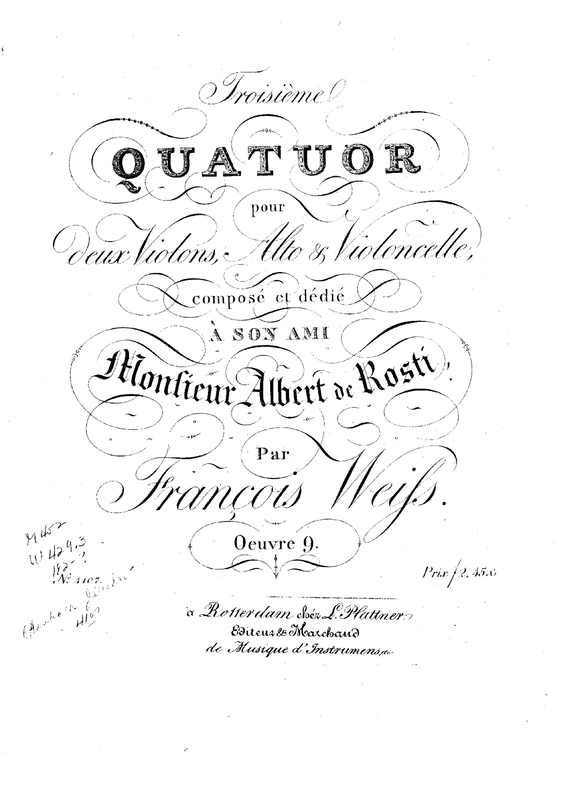 Troisième
QUATUOR
pour
deux Violons, Alto & Violoncelle,
composé et dédié
À SON AMI
Monsieur Albert de Rosti,
Par
François Weiſs.
Oeuvre 9.
M452
W429.3
182-?
Prix f 2,45.c
à Rotterdam chéz L. Plattner
Editeur & Marchand
de Musique d'Instrumens, &c.